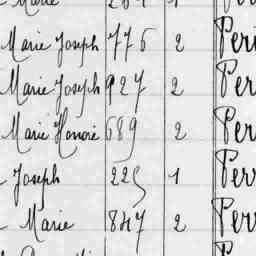 Marie Joseph 776 2 Per
Marie Joseph 927 2 Per
Marie Honoré 689 2 Per
Joseph 225 1 Per
Marie 847 2 Per